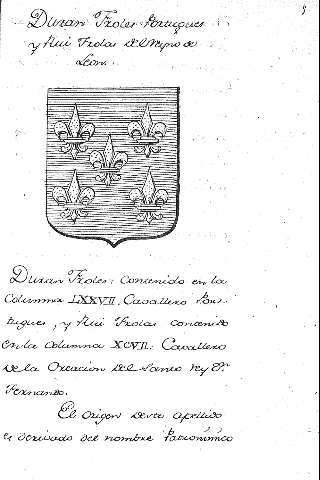 Duran Froles Portugues
y Rui Frolas del Reyno de
Leon.
Duran Froles: Contenido en la
Columna LXXVII, Cavallero Por-
tugues, y Rui Frolas contenido
en la columna XCVII: Cavallero
de la Creacion del Santo Rey Dn
Fernando.
El origen de este apellido
es derivado del nombre Patronimico